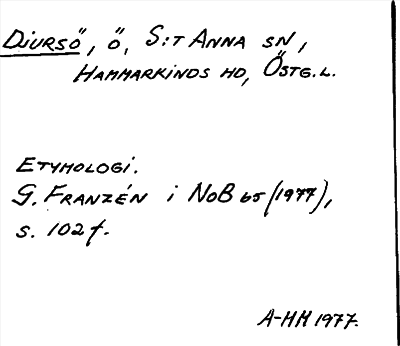 Djursö, ö, S:t Anna sn,
Hammarkinds hd, Östg.l.
Etymologi.
G. Franzén i NoB 65 (1977),
s. 102 f.
A-HH 1977.